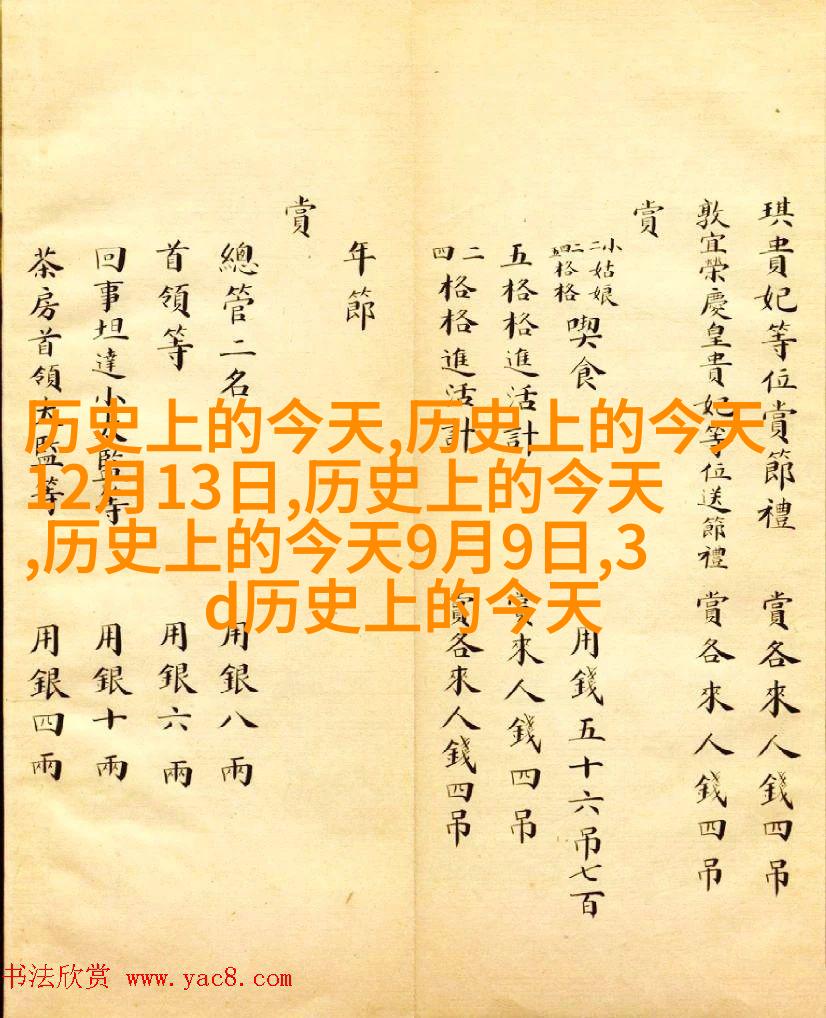 琪貴妃等位賞節禮 賞各來人錢四吊
敦宜榮慶皇貴妃等位送節禮 賞各來人錢四吊
賞
小姑娘 格格 喫食 用錢五十六吊七百
五格格進活計 賞來人錢四吊
二四格格進活計 賞各來人錢四吊
年節
賞
總管二名 用銀八兩
首領等 用銀六兩
回事坦達小太監等 用銀十兩
茶房首領太監等 用銀四兩
历史上的今天,历史上的今天
12月13日,历史上的今天
,历史上的今天9月9日,3
d历史上的今天
书法欣赏 www.yac8.com